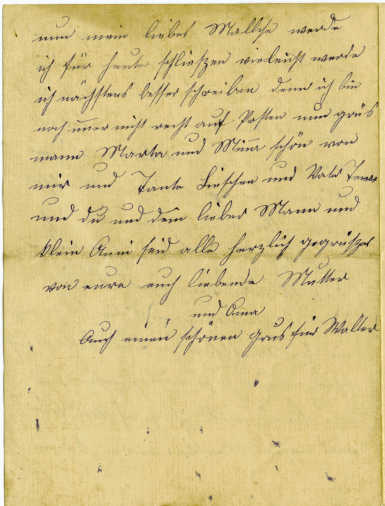 nun mein liebes Mallche werde
ich für heute schließen vieleicht werde
ich nächstens besser schreiben denn ich bin
noch imer nicht recht auf Posten nun grüs
mann Marta und Mina schön von
mir und Tante Lieschen und Vater
und du und dein lieber Mann und
klein Anni seid alle herzlich gegrüßt
von eure euch liebende Mutter
und Anna
Auch einen schönen grus für Walter